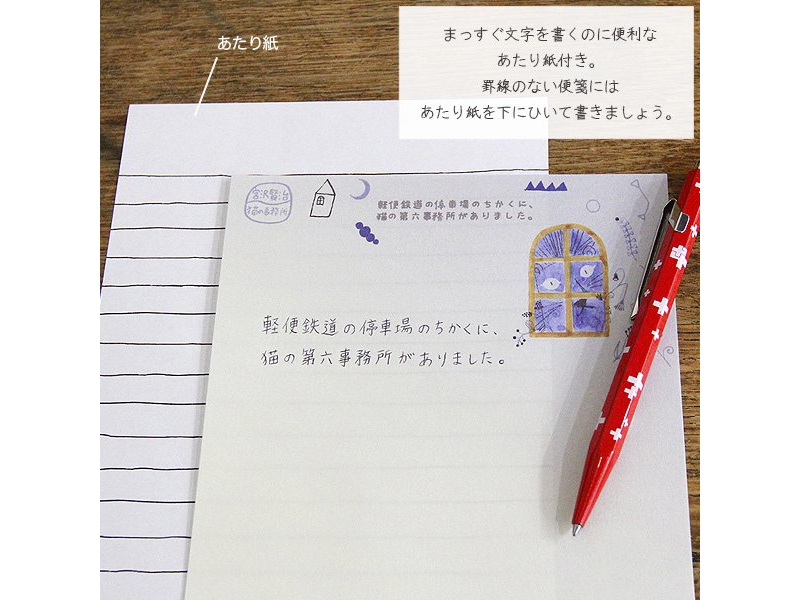 あたり紙
まっすぐ文字を書くのに便利な
あたり紙付き。
罫線のない便箋には
あたり紙を下にひいて書きましょう。
宮沢賢治
猫の事務所
軽便鉄道の停車場のちかくに、
猫の第六事務所がありました。
軽便鉄道の停車場のちかくに、
猫の第六事務所がありました。